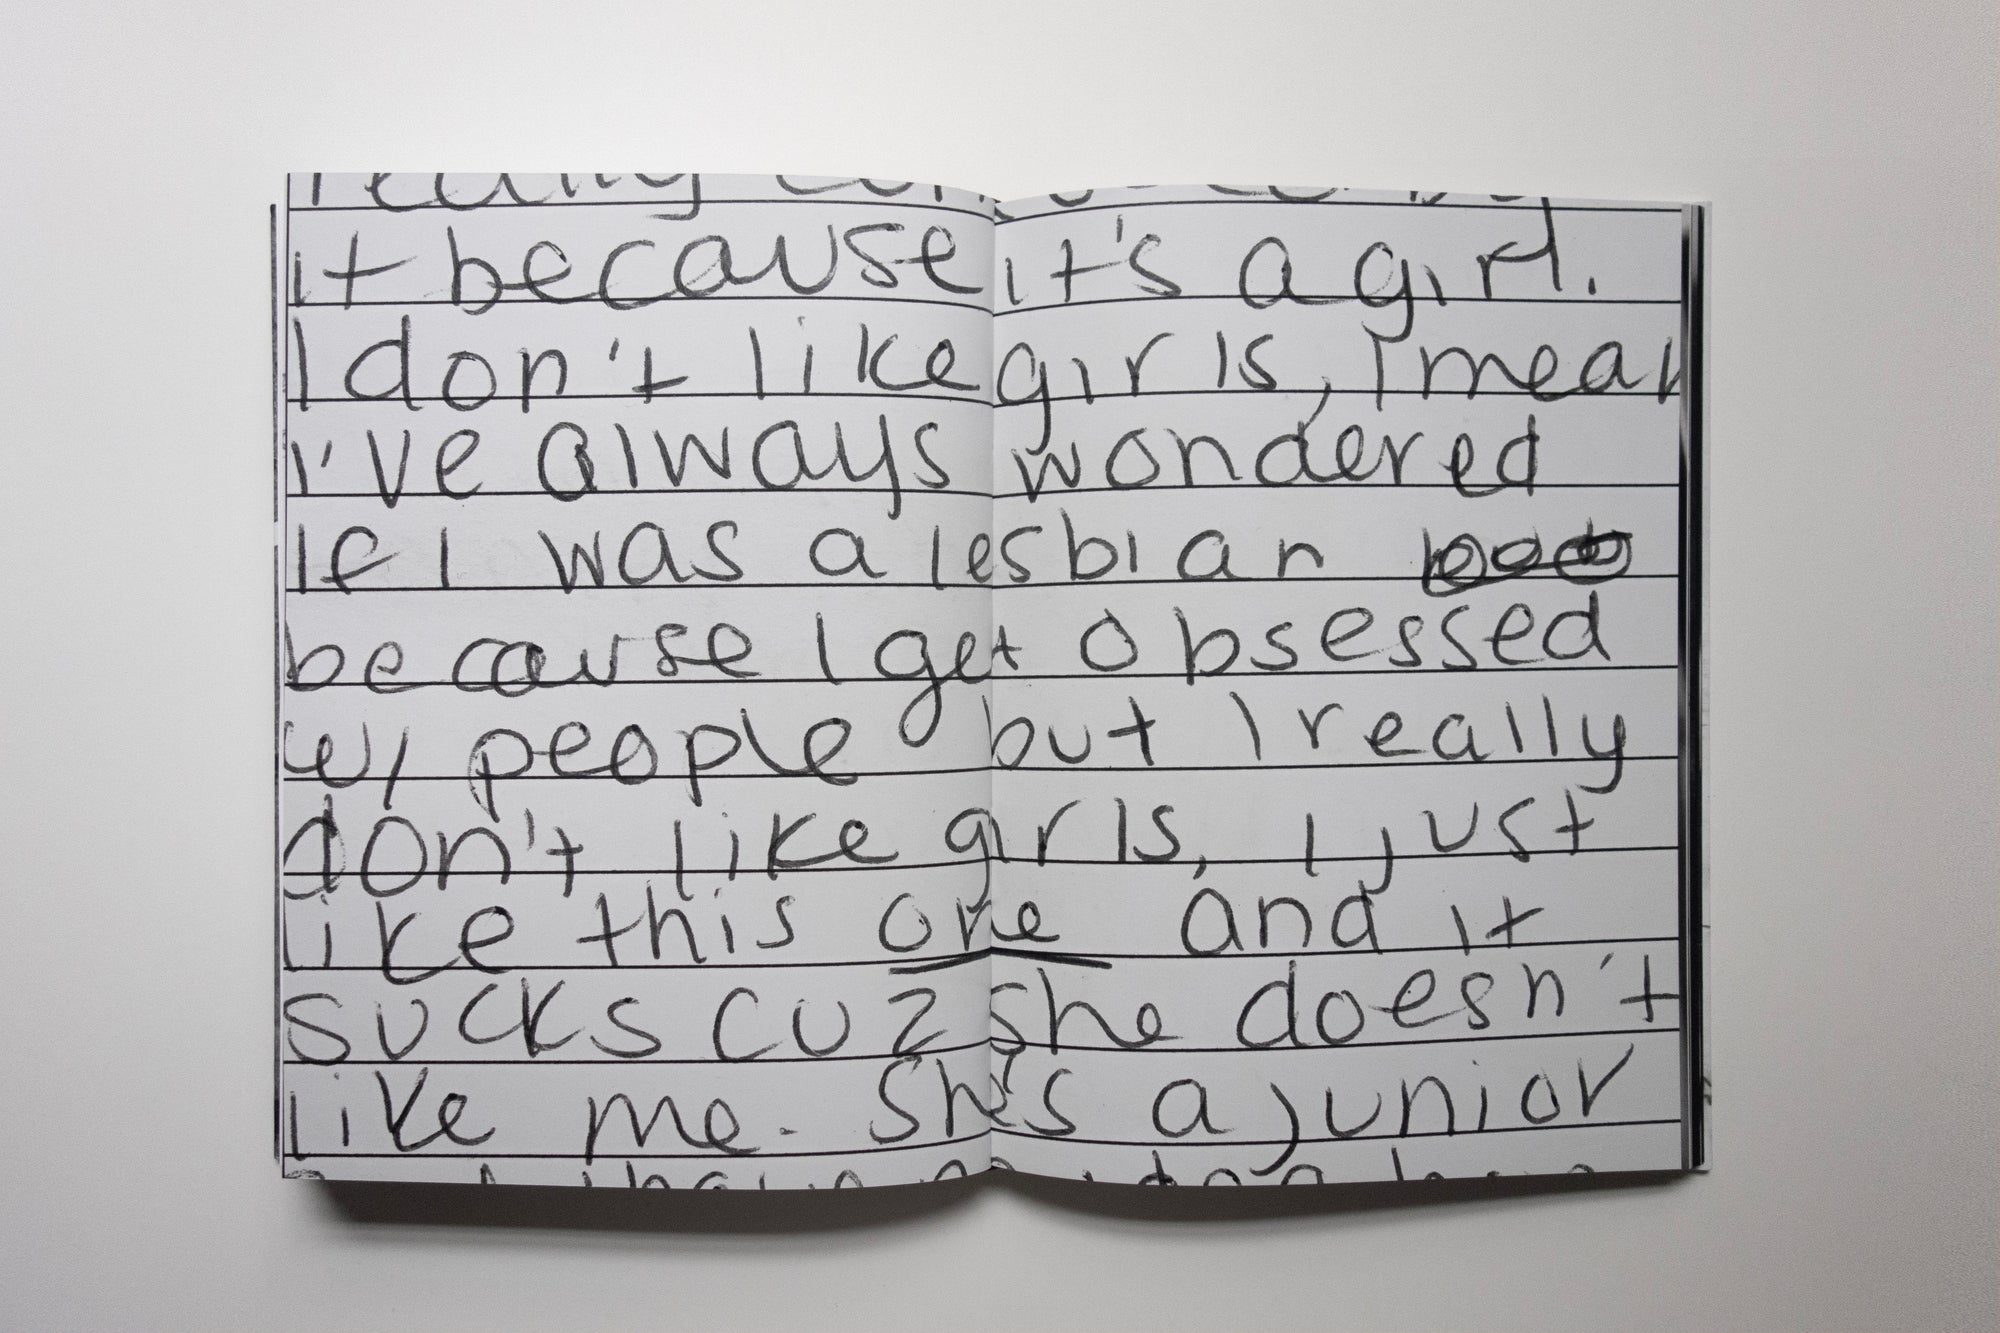 really
it because it's a girl.
I don't like girls, I mean
I've always wondered
If I was a lesbian
because I get obsessed
w/ people but I really
don't like girls, I just
like this one and it
sucks cuz she doesn't
like me. She's a junior